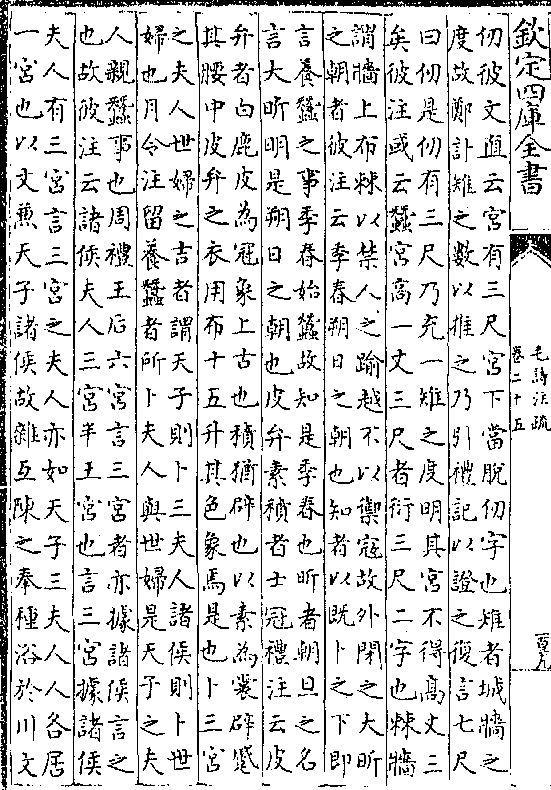 欽定四庫全書
毛詩注疏
卷二十五
仭彼文直云宫有三尺宫下當脱仭字也雉者城牆之
度故鄭計雉之數以推之乃引禮記以證之復言七尺
曰仭是仭有三尺乃充一雉之度明其宫不得髙丈三
矣彼注或云蠶宫髙一丈三尺者衍三尺二字也棘牆
謂牆上布棘以禁人之踰越不以禦宼故外閉之大昕
之朝者彼注云季春朔日之朝也知者以既卜之下即
言養蠶之事季春始蠶故知是季春也昕者朝旦之名
言大昕明是朔日之朝也皮弁素積者士冠禮注云皮
弁者白鹿皮為冠象上古也積猶辟也以素為裳辟蹙
其腰中皮弁之衣用布十五升其色象焉是也卜三宫
之夫人世婦之吉者謂天子則卜三夫人諸侯則卜世
婦也月令注留養蠶者所卜夫人與世婦是天子之夫
人親蠶事也周禮王后六宫言三宫者亦據諸侯言之
也故彼注云諸侯夫人三宫半王宫也言三宫據諸侯
夫人有三宫言三宫之夫人亦如天子三夫人人各居
一宫也以文兼天子諸侯故雜互陳之奉種浴於川文